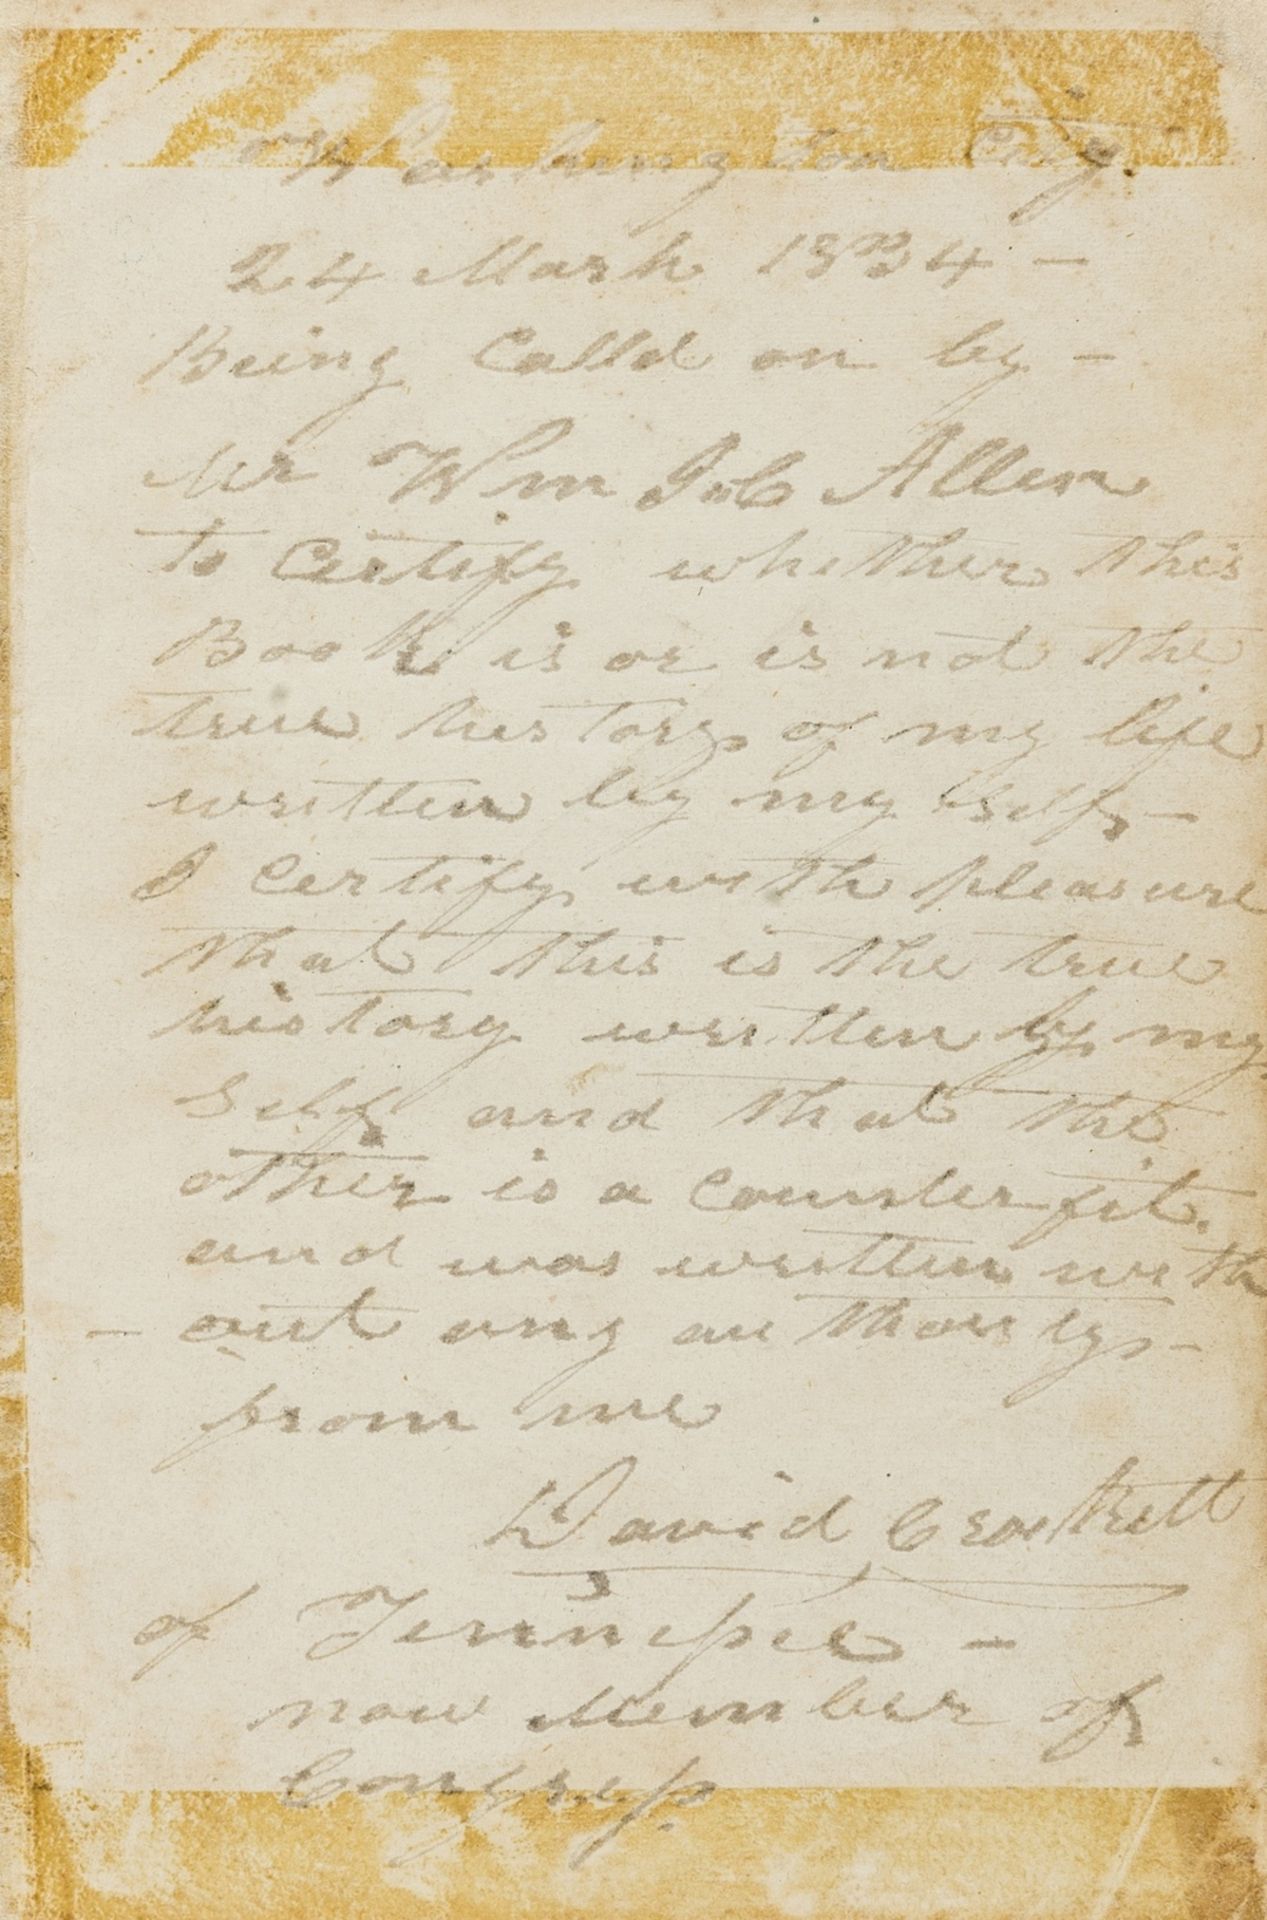 Washington City.
24 March 1834 —
Being Calld on by —
Mr Wm Allen
to Certify whether this
Book is or is not the
true history of my life
written by my Self —
I Certify with pleasure
that this is the true
history written by my
Self and that the
other is a Counterfit.
and was written with
— out any authority —
from me
David Crockett
of Tennessee —
now Member of
Congress